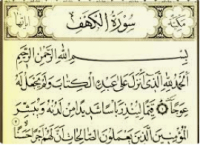 سورة الكهف
بسم الله الرحمن الرحيم
الحمد لله الذي أنزل على عبده الكتاب ولم يجعل له
عوجا قيما لينذر بأسا شديدا من لدنه ويبشر
المؤمنين الذين يعملون الصالحات أن لهم أجرا حسنا